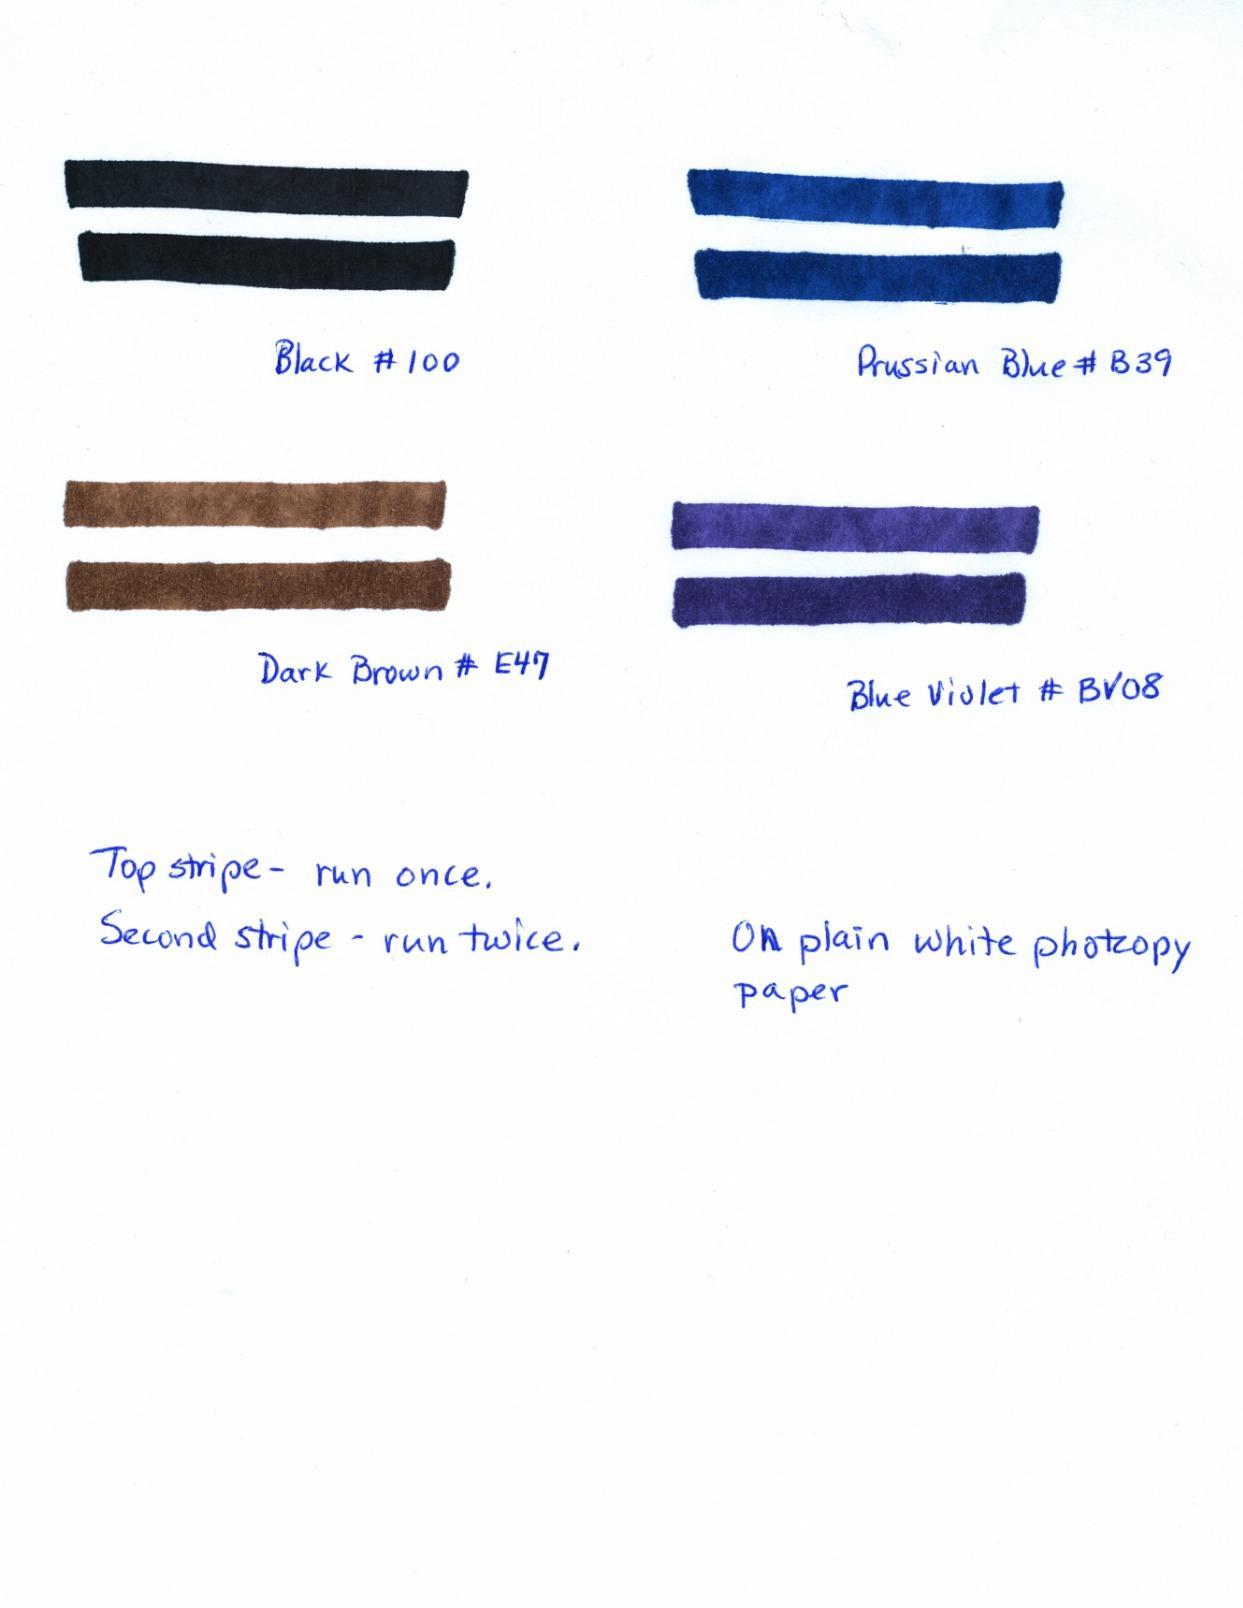 Black #100
Prussian Blue # B39
Dark Brown # E47
Blue Violet # BV08
Top stripe - run once.
Second stripe - run twice.
On plain white photocopy
paper